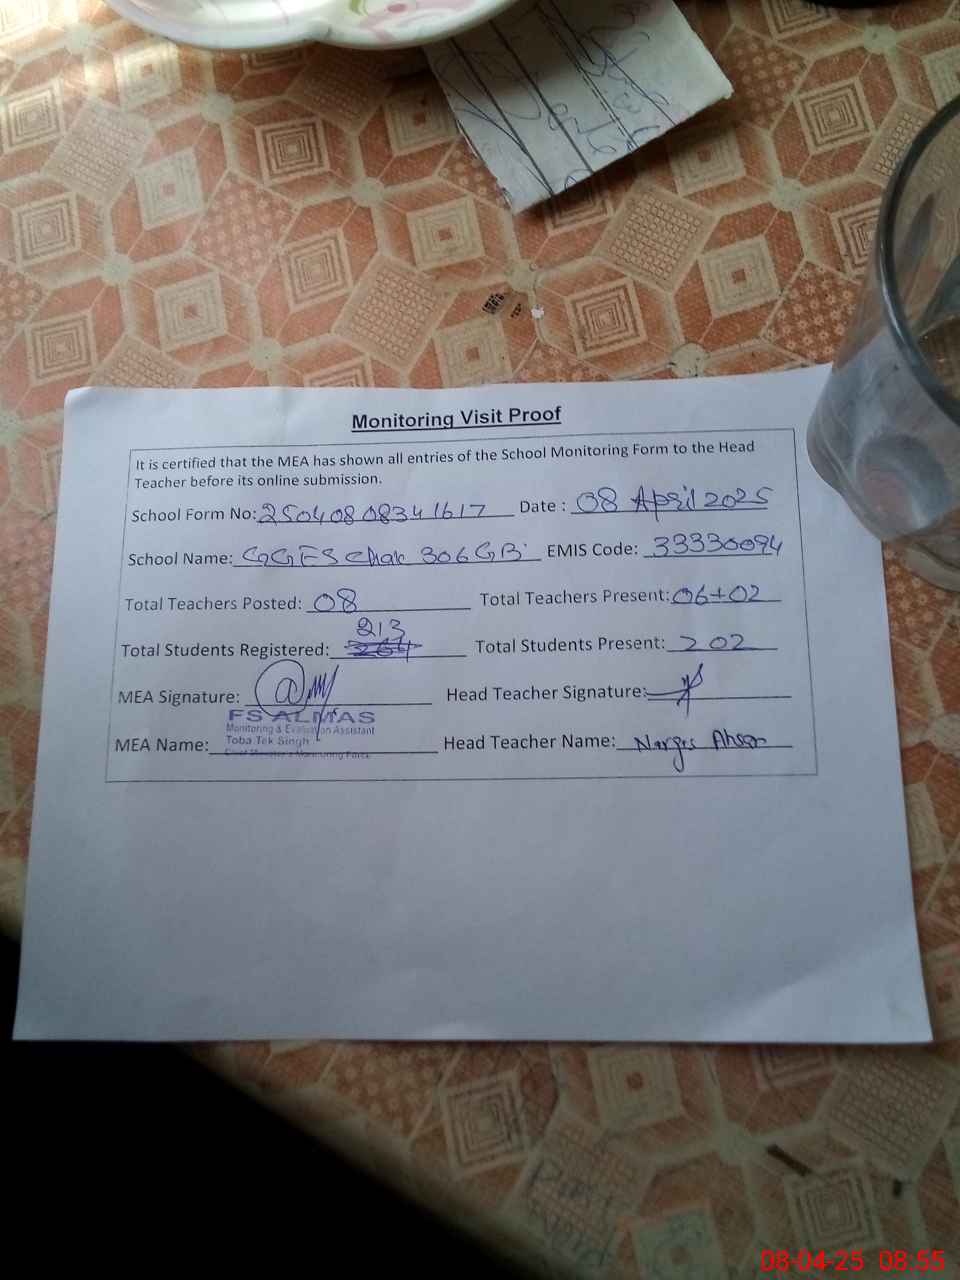 Monitoring Visit Proof
It is certified that the MEA has shown all entries of the School Monitoring Form to the Head
Teacher before its online submission.
School Form No: 2504080834 1617 Date : 08 April 2025
School Name: GGES Chak 306 GB EMIS Code: 33330094
Total Teachers Posted: 08 Total Teachers Present: 06+02
213
Total Students Registered: 264 Total Students Present: 202
MEA Signature: Head Teacher Signature:
FS ALMAS
Monitoring & Evaluation Assistant
Toba Tek Singh
MEA Name: Head Teacher Name: Narges Ahsan
Chief Minister's Monitoring Force
08-04-25 08:55